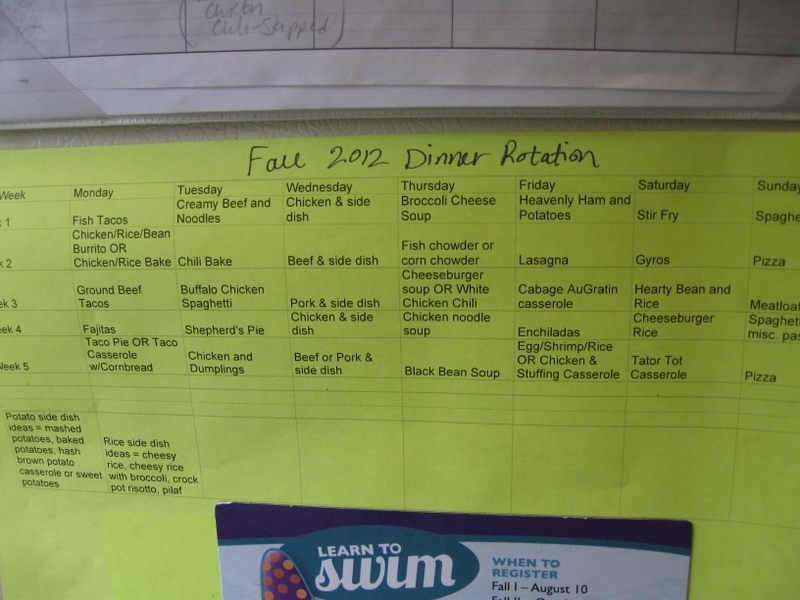 Chicken
Chili-Skipped
Fall 2012 Dinner Rotation
Week Monday Tuesday Wednesday Thursday Friday Saturday Sunday
1 Fish Tacos Creamy Beef and Noodles Chicken & side dish Broccoli Cheese Soup Heavenly Ham and Potatoes Stir Fry Spaghe
k 2 Chicken/Rice/Bean Burrito OR Chicken/Rice Bake Chili Bake Beef & side dish Fish chowder or corn chowder Lasagna Gyros Pizza
ek 3 Ground Beef Tacos Buffalo Chicken Spaghetti Pork & side dish Cheeseburger soup OR White Chicken Chili Cabage AuGratin casserole Hearty Bean and Rice Meatloa
eek 4 Fajitas Shepherd's Pie Chicken & side dish Chicken noodle soup Enchiladas Cheeseburger Rice Spaghet misc. pas
Week 5 Taco Pie OR Taco Casserole w/Cornbread Chicken and Dumplings Beef or Pork & side dish Black Bean Soup Egg/Shrimp/Rice OR Chicken & Stuffing Casserole Tator Tot Casserole Pizza
Potato side dish
ideas = mashed
potatoes, baked
potatoes, hash
brown potato
casserole or sweet
potatoes
Rice side dish
ideas = cheesy
rice, cheesy rice
with broccoli, crock
pot risotto, pilaf
LEARN TO
swim
WHEN TO
REGISTER
Fall I – August 10